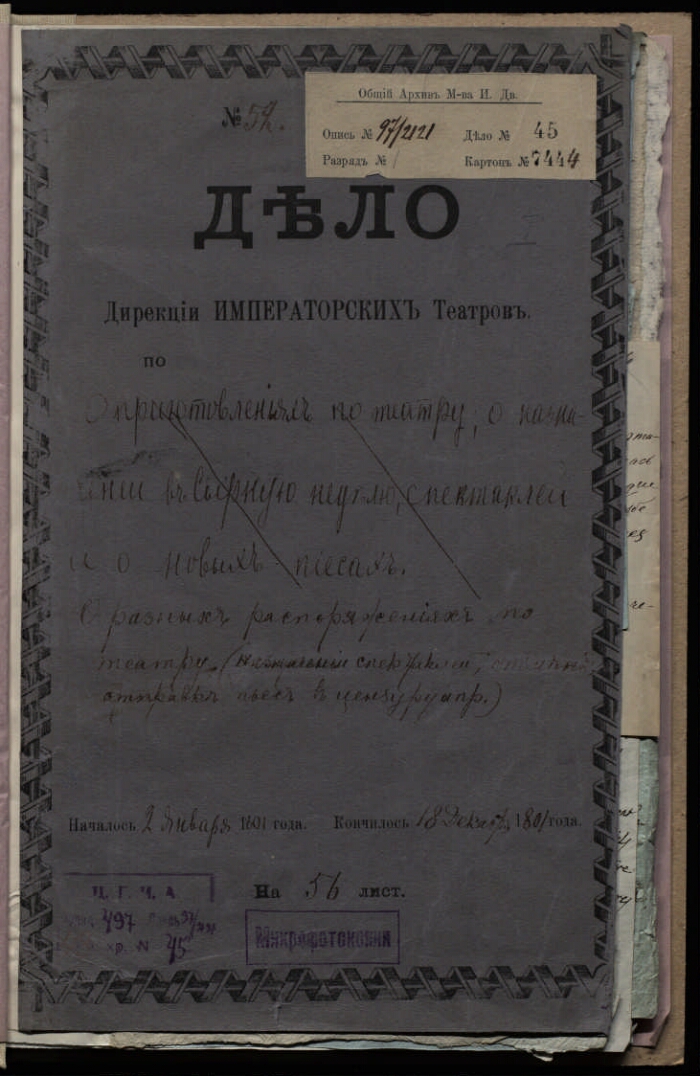 Общій Архивъ М-ва И. Дв.
Опись № 97/2121 Дѣло № 45
Разрядъ № Картонъ № 7444
№ 52.
ДѢЛО
Дирекціи ИМПЕРАТОРСКИХЪ Театровъ.
по
О приготовленіяхъ по театру, о назна-
ніи въ Сырную недѣлю, спектаклей
и о новыхъ піесахъ.
О разныхъ распоряженіяхъ по
театру. (назначеніи спектаклей,
отправкѣ пьесъ въ цензуру и пр.)
Началось 2 Января 1801 года. Кончилось 18 Декабр. 1801 года.
На 56 лист.
Ц. Г. И. А
497
хр. N 45
Микрофотокопия